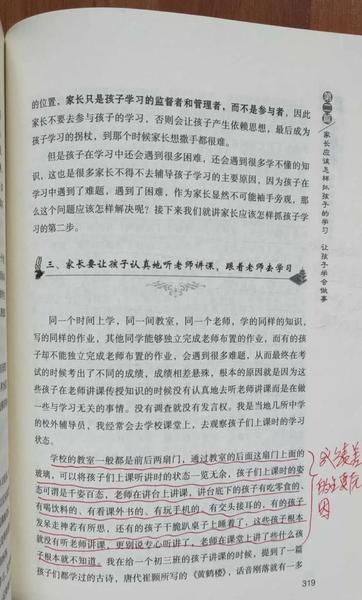 的位置，家长只是孩子学习的监督者和管理者，而不是参与者，因此
家长不要去参与孩子的学习，否则会让孩子产生依赖思想，最后成为
孩子学习的拐杖，到那个时候家长想撒手都很难。
但是孩子在学习中还会遇到很多困难，还会遇到很多学不懂的知
识，这也是很多家长不得不去辅导孩子学习的主要原因，因为孩子在
学习中遇到了难题，遇到了困难，作为家长显然不可能袖手旁观，那
么这个问题应该怎样解决呢？接下来我们就讲家长应该怎样抓孩子学
习的第二步。
三、家长要让孩子认真地听老师讲课，跟着老师去学习
同一个时间上学，同一间教室，同一个老师，学的同样的知识，
写的同样的作业，其他同学能够独立完成老师布置的作业，而有的孩
子却不能独立完成老师布置的作业，会遇到很多难题，从而最终在考
试的时候考出了不同的成绩，成绩相差悬殊，根本的原因就是因为这
些孩子在老师讲课传授知识的时候没有认真地去听老师讲课而是在做
一些与学习无关的事情。没有调查就没有发言权。我是当地几所中学
的校外辅导员，我经常会去学校课堂上，去观察孩子们上课时的学习
状态。
学校的教室一般都是前后两扇门，通过教室的后面这扇门上面的
玻璃，可以将孩子们上课听讲时的状态一览无余，孩子们上课时的姿
态可谓是千姿百态，老师在讲台上讲课，讲台底下的孩子有吃零食的、
有喝饮料的、有看课外书的、有玩手机的、有交头接耳的，有的孩子
发呆走神若有所思，还有的孩子干脆趴桌子上睡着了，这些孩子根本
就没有听老师讲课，更别说专心听讲了，老师在课堂上讲了些什么孩
子根本就不知道。我在给一个初三班的孩子讲课的时候，提到了一篇
孩子们都学过的古诗，唐代崔颢所写的《黄鹤楼》，话音刚落就有一多
319
第二篇 家长应该怎样抓孩子的学习，让孩子学会做事
因